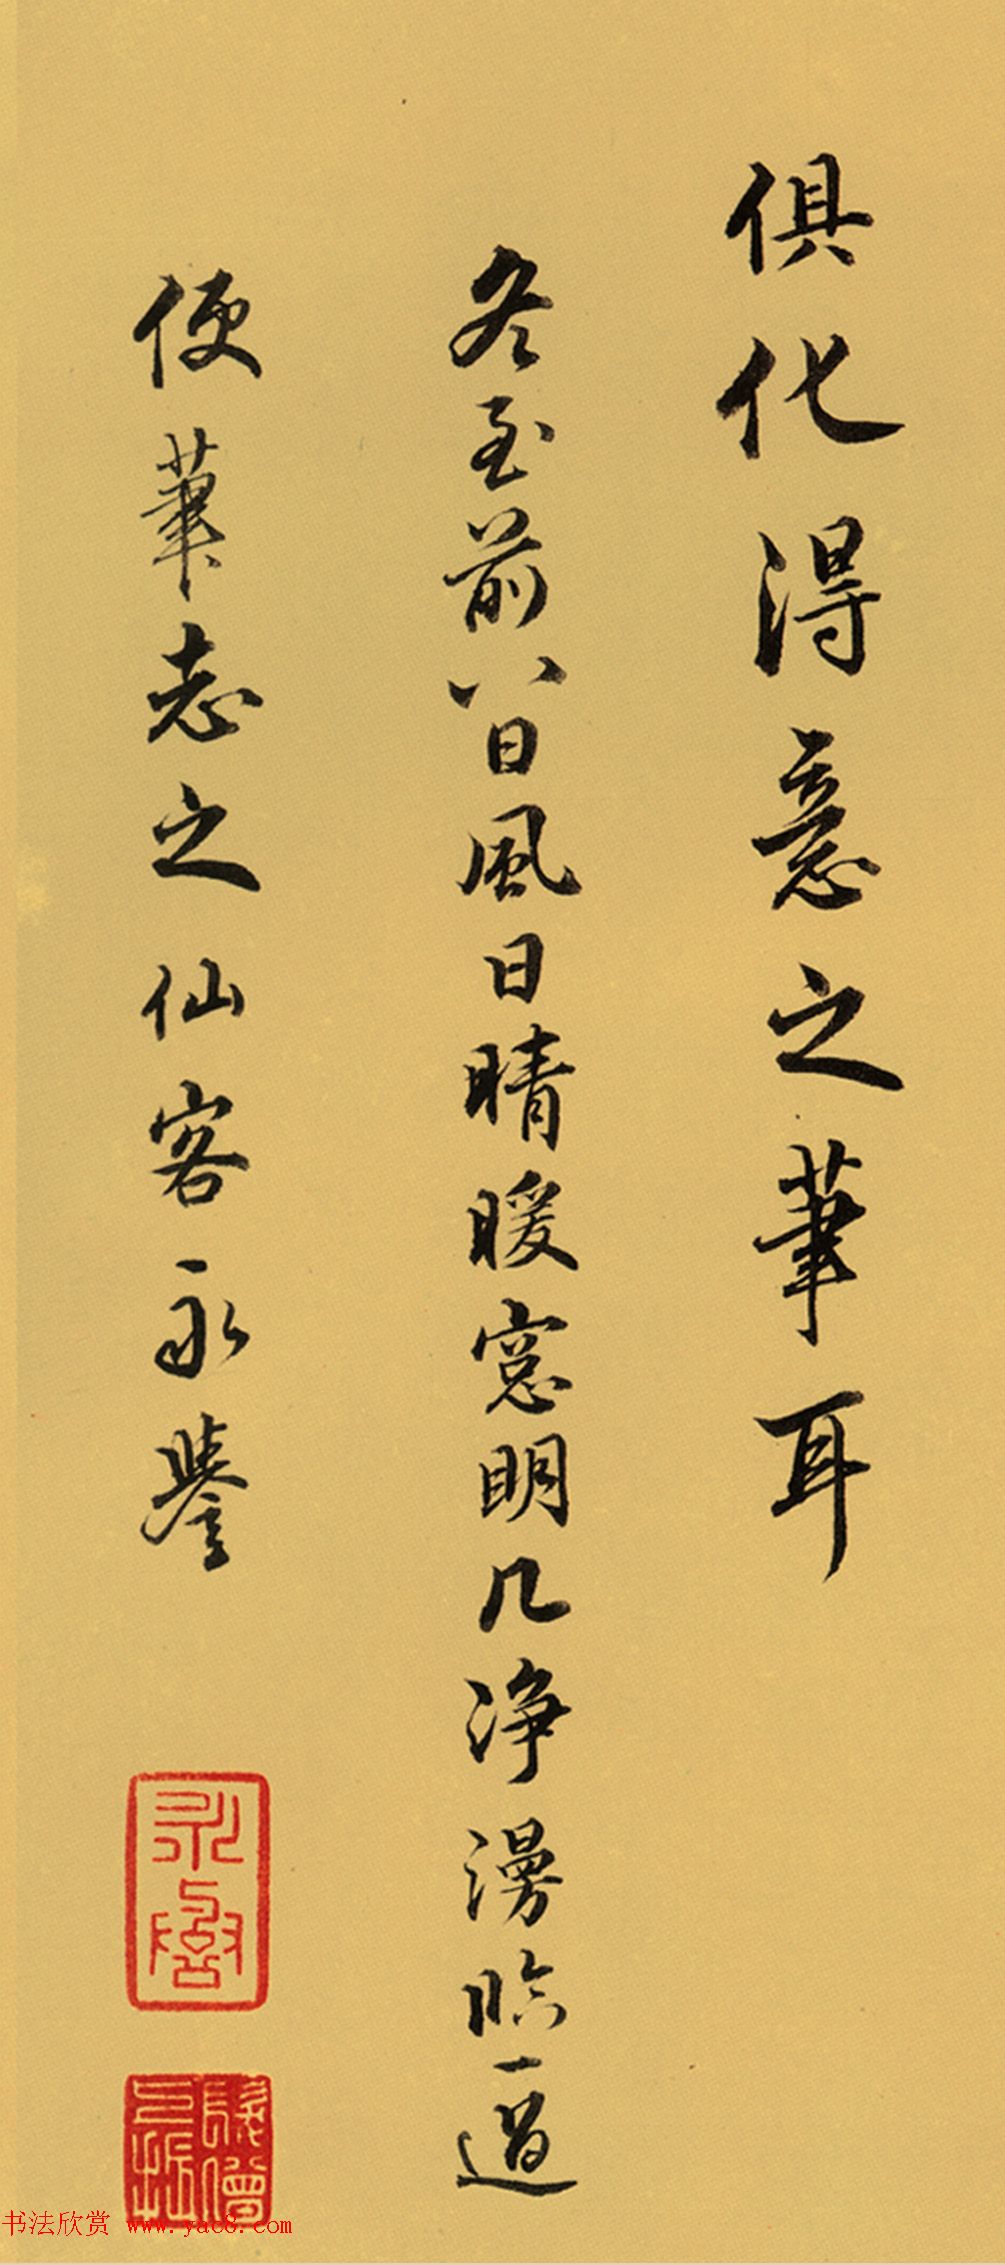 俱化得意之筆耳
冬至前八日風日晴暖窓明几浄漫臨一過
便筆志之仙客永譽
永譽
書法欣赏 www.yac8.com